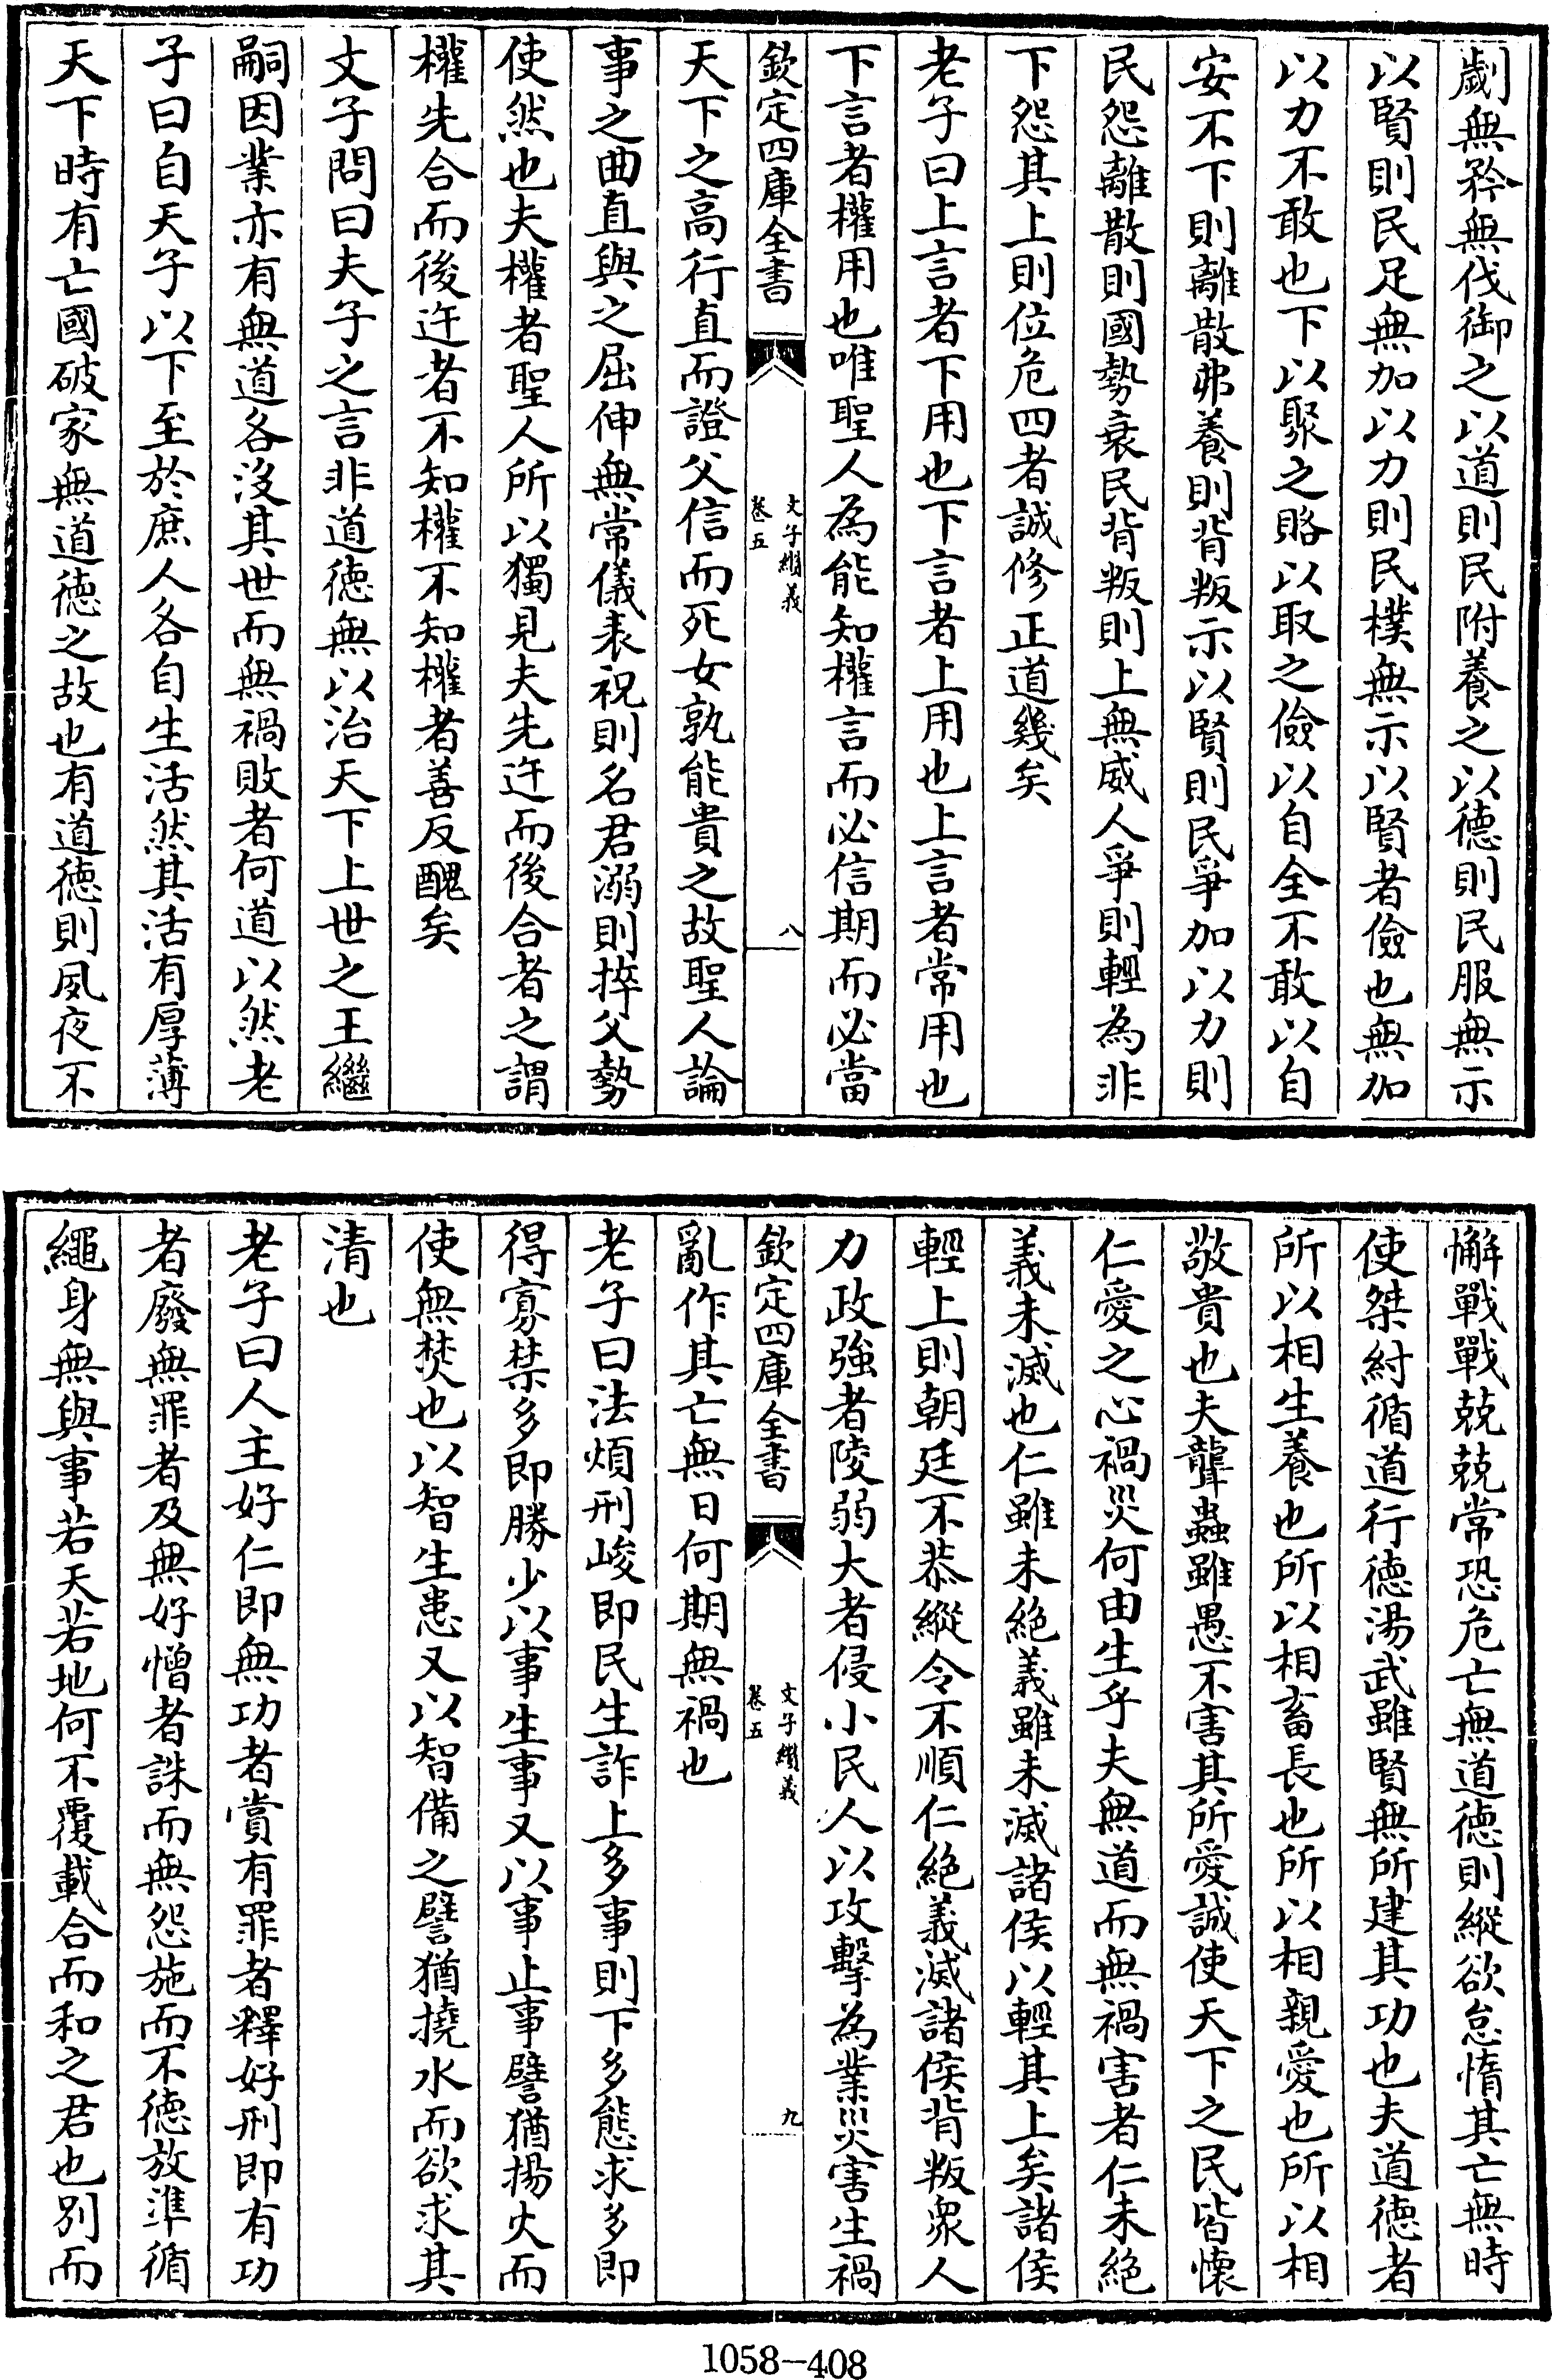 劌無矜無伐御之以道則民附養之以德則民服無示
以賢則民足無加以力則民樸無示以賢者儉也無加
以力不敢也下以聚之賂以取之儉以自全不敢以自
安不下則離散弗養則背叛示以賢則民爭加以力則
民怨離散則國勢衰民背叛則上無威人爭則輕為非
下怨其上則位危四者誠修正道幾矣
老子曰上言者下用也下言者上用也上言者常用也
下言者權用也唯聖人為能知權言而必信期而必當
欽定四庫全書
文子纘義
卷五
八
天下之高行直而證父信而死女孰能貴之故聖人論
事之曲直與之屈伸無常儀表祝則名君溺則捽父勢
使然也夫權者聖人所以獨見夫先迕而後合者之謂
權先合而後迕者不知權不知權者善反醜矣
文子問曰夫子之言非道德無以治天下上世之王繼
嗣因業亦有無道各沒其世而無禍敗者何道以然老
子曰自天子以下至於庶人各自生活然其活有厚薄
天下時有亡國破家無道德之故也有道德則夙夜不
懈戰戰兢兢常恐危亡無道德則縱欲怠惰其亡無時
使桀紂循道行德湯武雖賢無所建其功也夫道德者
所以相生養也所以相畜長也所以相親愛也所以相
敬貴也夫聾蟲雖愚不害其所愛誠使天下之民皆懷
仁愛之心禍災何由生乎夫無道而無禍害者仁未絕
義未滅也仁雖未絕義雖未滅諸侯以輕其上矣諸侯
輕上則朝廷不恭縱令不順仁絕義滅諸侯背叛眾人
力政強者陵弱大者侵小民人以攻擊為業災害生禍
欽定四庫全書
文子纘義
卷五
九
亂作其亡無日何期無禍也
老子曰法煩刑峻即民生詐上多事則下多態求多即
得寡禁多即勝少以事生事又以事止事譬猶揚火而
使無焚也以智生患又以智備之譬猶撓水而欲求其
清也
老子曰人主好仁即無功者賞有罪者釋好刑即有功
者廢無罪者及無好憎者誅而無怨施而不德放準循
繩身無與事若天若地何不覆載合而和之君也別而
1058-408